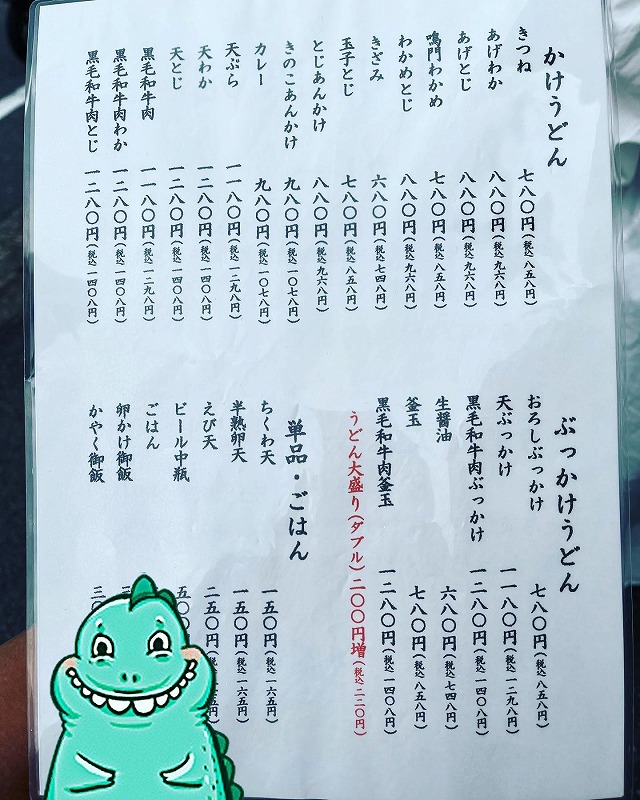 かけうどん
きつね 七八〇円(税込 八五八円)
あげわか 八八〇円(税込 九六八円)
あげとじ 八八〇円(税込 九六八円)
鳴門わかめ 七八〇円(税込 八五八円)
わかめとじ 八八〇円(税込 九六八円)
きざみ 六八〇円(税込 七四八円)
玉子とじ 七八〇円(税込 八五八円)
とじあんかけ 八八〇円(税込 九六八円)
きのこあんかけ 九八〇円(税込 一〇七八円)
カレー 九八〇円(税込 一〇七八円)
天ぷら 一一八〇円(税込 一二九八円)
天わか 一二八〇円(税込 一四〇八円)
天とじ 一二八〇円(税込 一四〇八円)
黒毛和牛肉 一一八〇円(税込 一二九八円)
黒毛和牛肉わか 一二八〇円(税込 一四〇八円)
黒毛和牛肉とじ 一二八〇円(税込 一四〇八円)
ぶっかけうどん
おろしぶっかけ 七八〇円(税込 八五八円)
天ぶっかけ 一一八〇円(税込 一二九八円)
黒毛和牛肉ぶっかけ 一二八〇円(税込 一四〇八円)
生醤油 六八〇円(税込 七四八円)
釜玉 七八〇円(税込 八五八円)
黒毛和牛肉釜玉 一二八〇円(税込 一四〇八円)
うどん大盛り(ダブル)二〇〇円増(税込 二二〇円)
単品・ごはん
ちくわ天 一五〇円(税込 一六五円)
半熟卵天 一五〇円(税込 一六五円)
えび天 二五〇円
ビール中瓶 五〇
ごはん
卵かけ御飯
かやく御飯 三〇